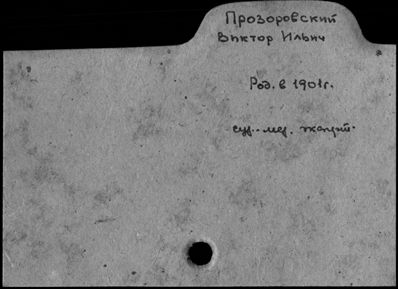 Прозоровский
Виктор Ильич
Род. в 1901г.
суд.-мед. эксперт.